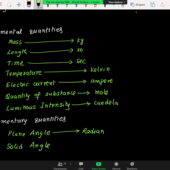 mental Quantities
Mass → kg
Length → m
Time → sec
Temperature → Kelvin
Electric current → ampere
Quantity of substance → mole
Luminous Intensity → candela
mentary Quantities
Plane Angle → Radian
Solid Angle